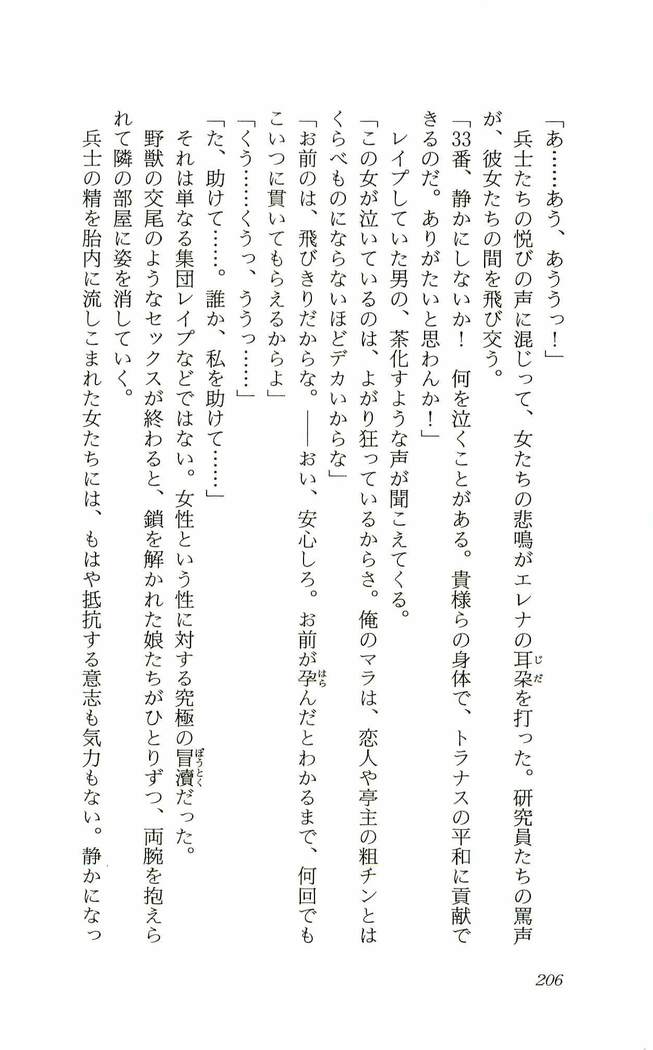 「あ……あう、あううっ！」
　兵士たちの悦びの声に混じって、女たちの悲鳴がエレナの耳朶を打った。研究員たちの罵声
が、彼女たちの間を飛び交う。
「33番、静かにしないか！　何を泣くことがある。貴様らの身体で、トラナスの平和に貢献で
きるのだ。ありがたいと思わんか！」
　レイプしていた男の、茶化すような声が聞こえてくる。
「この女が泣いているのは、よがり狂っているからさ。俺のマラは、恋人や亭主の粗チンとは
くらべものにならないほどデカいからな」
「お前のは、飛びきりだからな。――おい、安心しろ。お前が孕んだとわかるまで、何回でも
こいつに貫いてもらえるからよ」
「くう……くうっ、ううっ……」
「た、助けて……。誰か、私を助けて……」
　それは単なる集団レイプなどではない。女性という性に対する究極の冒瀆だった。
　野獣の交尾のようなセックスが終わると、鎖を解かれた娘たちがひとりずつ、両腕を抱えら
れて隣の部屋に姿を消していく。
　兵士の精を胎内に流しこまれた女たちには、もはや抵抗する意志も気力もない。静かになっ
じだ
はら
ぼうとく
206